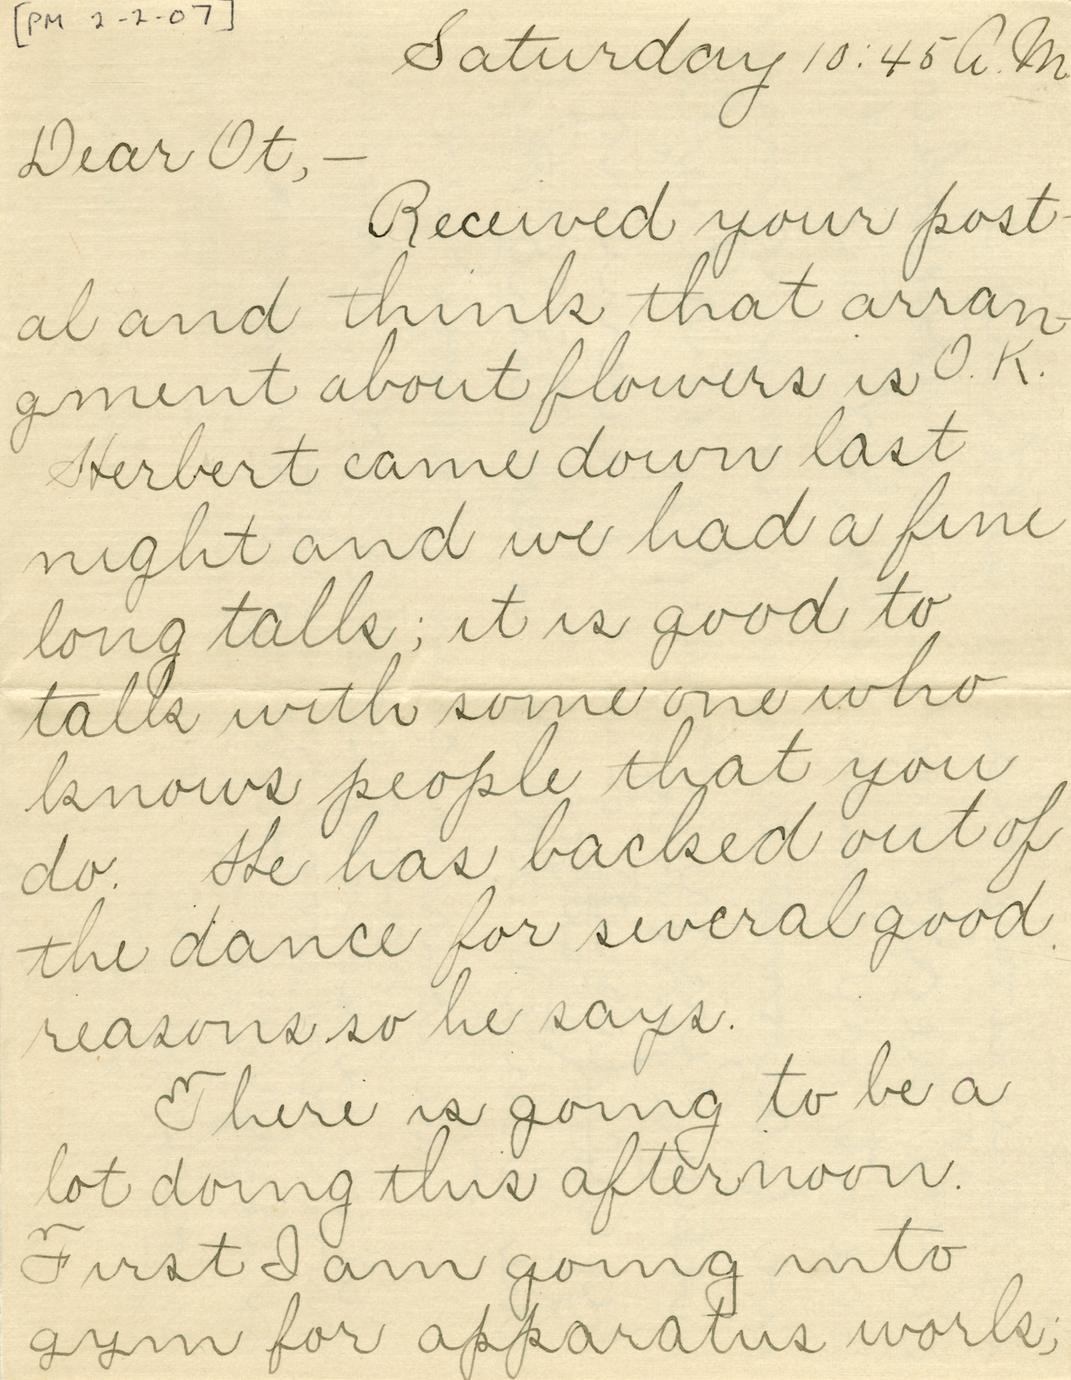 [PM 2-2-07]
Saturday 10:45 A.M.
Dear Ot,—
Received your post-
al and think that arran-
gment about flowers is O.K.
Herbert came down last
night and we had a fine
long talk; it is good to
talk with some one who
knows people that you
do. He has backed out of
the dance for several good
reasons so he says.
There is going to be a
lot doing this afternoon.
First I am going into
gym for apparatus work;